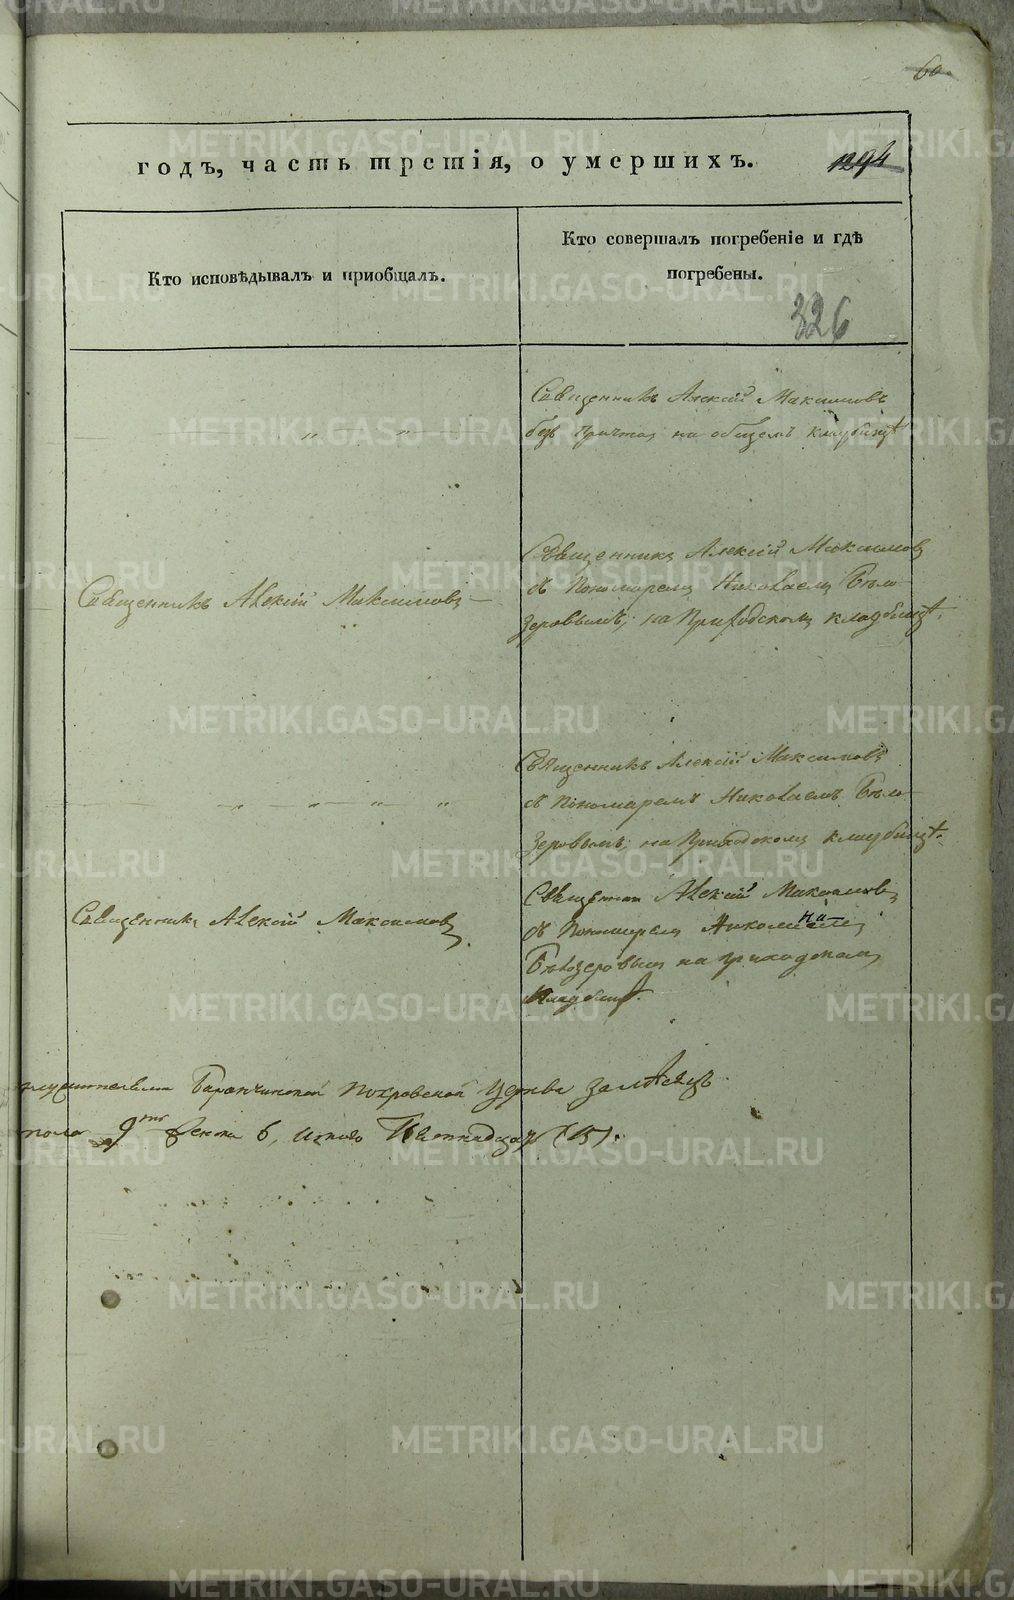 60
годъ, часть третія, о умершихъ.
1294
Кто исповѣдывалъ и пріобщалъ.
Кто совершалъ погребеніе и гдѣ
погребены.
326
Священникъ Алексій Максимовъ
безъ причта, на общемъ кладбищѣ
Священникъ Алексій Максимовъ
Священникъ Алексій Максимовъ
съ Пономаремъ Николаемъ Бѣло-
зеровымъ, на Приходскомъ кладбищѣ.
Священникъ Алексій Максимовъ
съ Пономаремъ Николаемъ Бѣло-
зеровымъ, на Приходскомъ кладбищѣ.
Священникъ Алексій Максимовъ
Священникъ Алексій Максимовъ
съ Пономаремъ
Бѣлозеровымъ на приходскомъ
кладбищѣ.
Баранчинской Покровской Церкви за мѣсяцъ
пола 9ть женска 6, итого Пятнадцать (15).
METRIKI.GASO-URAL.RU